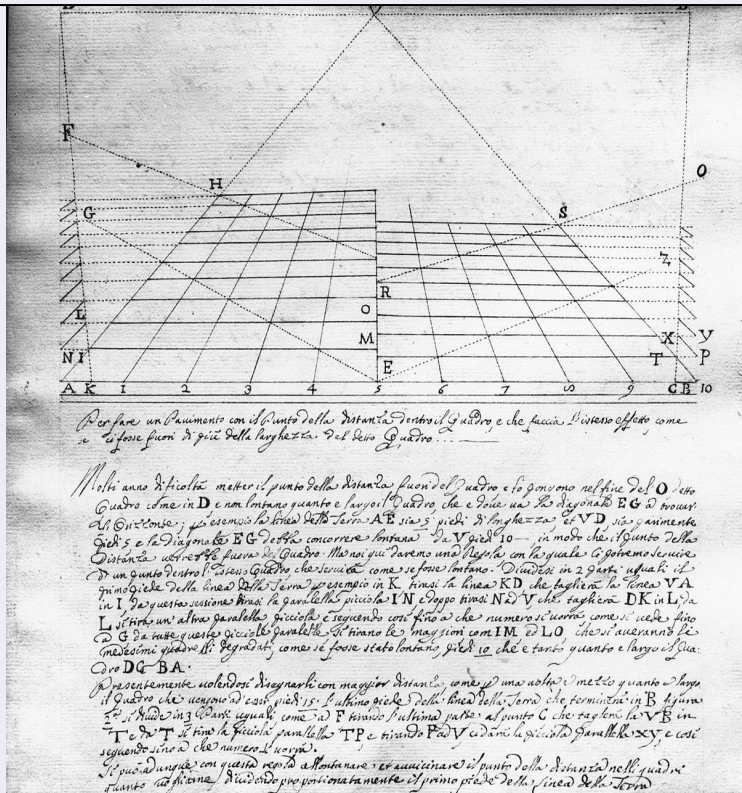 D V D
F
H
O
G
S
Z
R
L
O
M
X
Y
N I
E
T
P
A K 1 2 3 4 5 6 7 8 9 C B 10
Per fare un Pavimento con il Punto della distanza dentro il Quadro, e che faccia l'istesso effetto, come
se fosse fuori di più della larghezza del detto Quadro.
Molti anno dificoltà metter il punto della distanza fuori del Quadro e lo pongono nel fine del detto
Quadro come in D e non lontano quanto e largo il Quadro, che e doue va la diagonale EG a trovar
Orizonte; esempio la linea della Terra AE sia 5 piedi di longhezza, et VD sia parimente
piedi 5 e la diagonale EG debba concorrere lontana da V piedi 10 in modo che il punto della
Distanza fuora del Quadro. Ma noi qui daremo una Regola con la quale ci potremo servire
di un punto dentro l'istesso Quadro che servirà come se fosse lontano. Dividesi in 2 parti uguali il
primo piede della linea della Terra esempio in K tirasi la linea KD che taglierà la linea VA
in I, da questa sessione tirasi la paralella picciola IN e doppo tirasi N ad V che taglierà DK in L, da
L si tira un'altra paralella picciola e seguendo così fino a che numero si vorrà come si vede fino
a G da tutte queste picciole paralelle si tirano le maggiori com IM ed LO, che si averanno li
medesimi quadretti degradati, come se fosse stato lontano piedi 10 che è tanto quanto e largo il Qua
dro DG BA.
Presentemente volendosi disegnarli con maggior distanza come una volta e mezzo quanto e largo
il Quadro che vengono ad esser piedi 15. l'ultimo piede della linea della Terra che terminerà in B figura
2ª si divide in 3 Parti uguali come ad F tirando l'ultima parte al punto C che taglierà la VB in
T e da T si tira la picciola paralella TP e tirando P ad V ci darà la picciola paralella XY, e così
seguendo sino a che numero si vorrà.
Si può adunque con questa regola allontanare, et avvicinare il punto della distanza nelli quadri
quanto dividendo proporzionatamente il primo piede della linea della Terra